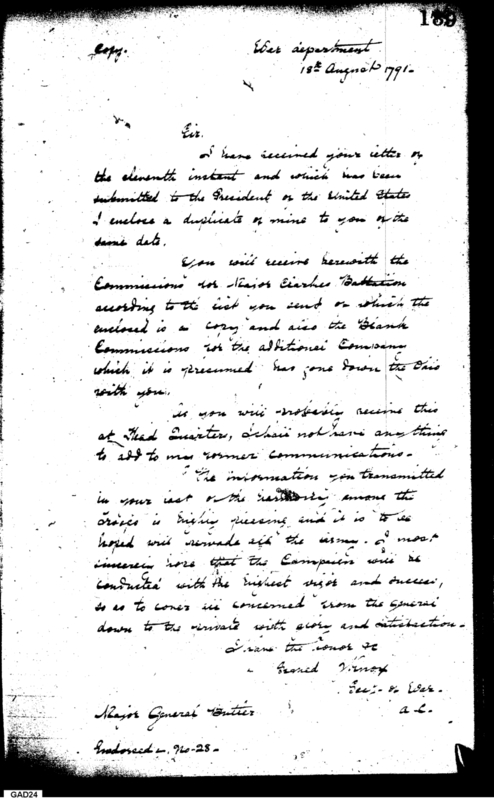 159
Copy.
War department
18th August 1791.
Sir.
I have received your letter of
the eleventh instant and which has been
submitted to the President of the United States
I enclose a duplicate of mine to you of the
same date.
You will receive herewith the
Commissions for Major Clarkes Battalion
according to the list you send of which the
enclosed is a copy and also the Blank
Commissions for the additional Company
which it is presumed has gone down the Ohio
with you.
As you will probably receive this
at Head Quarter, I shall not have any thing
to add to my former communications.
The information you transmitted
in your last of the harmony among the
troops is highly pleasing and it is to be
hoped will pervade all the army. I most
sincerely hope that the Campaign will be
conducted with the highest vigor and success,
so as to cover all concerned from the General
down to the private with glory and satisfaction.
I have the honor &c
Signed H Knox
Secy. of War.
Major General Butler
Endorsed No. 28.
GAD24